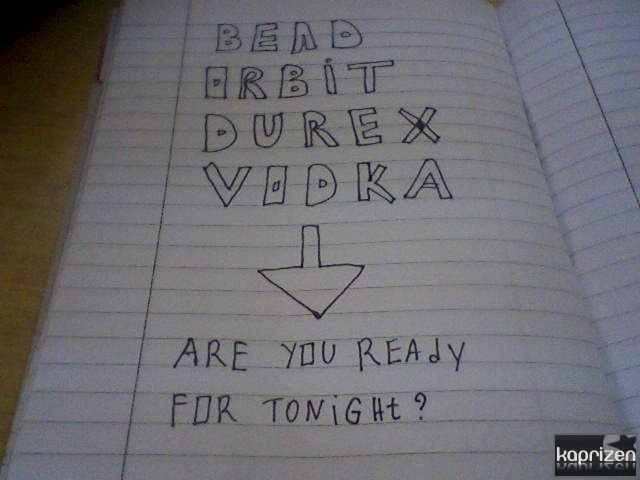 BEAD
ORBiT
DUREX
VODKA
ARE YOU READY
FOR TONiGHt?
kaprizen